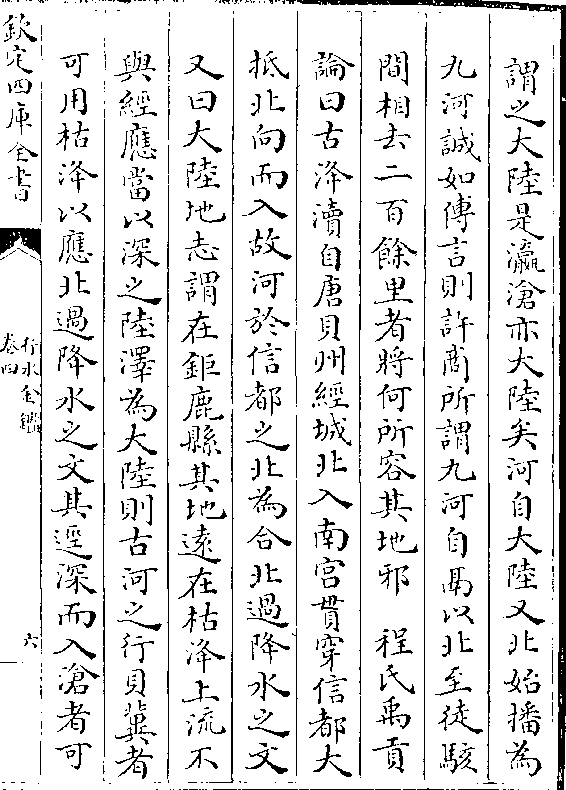 謂之大陸是瀛滄亦大陸矣河自大陸又北始播為
九河誠如傳言則許商所謂九河自鬲以北至徒駭
間相去二百餘里者將何所容其地邪　程氏禹貢
論曰古洚瀆自唐貝州經城北入南宫貫穿信都大
抵北向而入故河於信都之北為合北過降水之文
又曰大陸地志謂在鉅鹿縣其地遠在枯洚上流不
與經應當以深之陸澤為大陸則古河之行貝冀者
可用枯洚以應北過降水之文其逕深而入滄者可
欽定四庫全書
行水金鑑
卷四
六